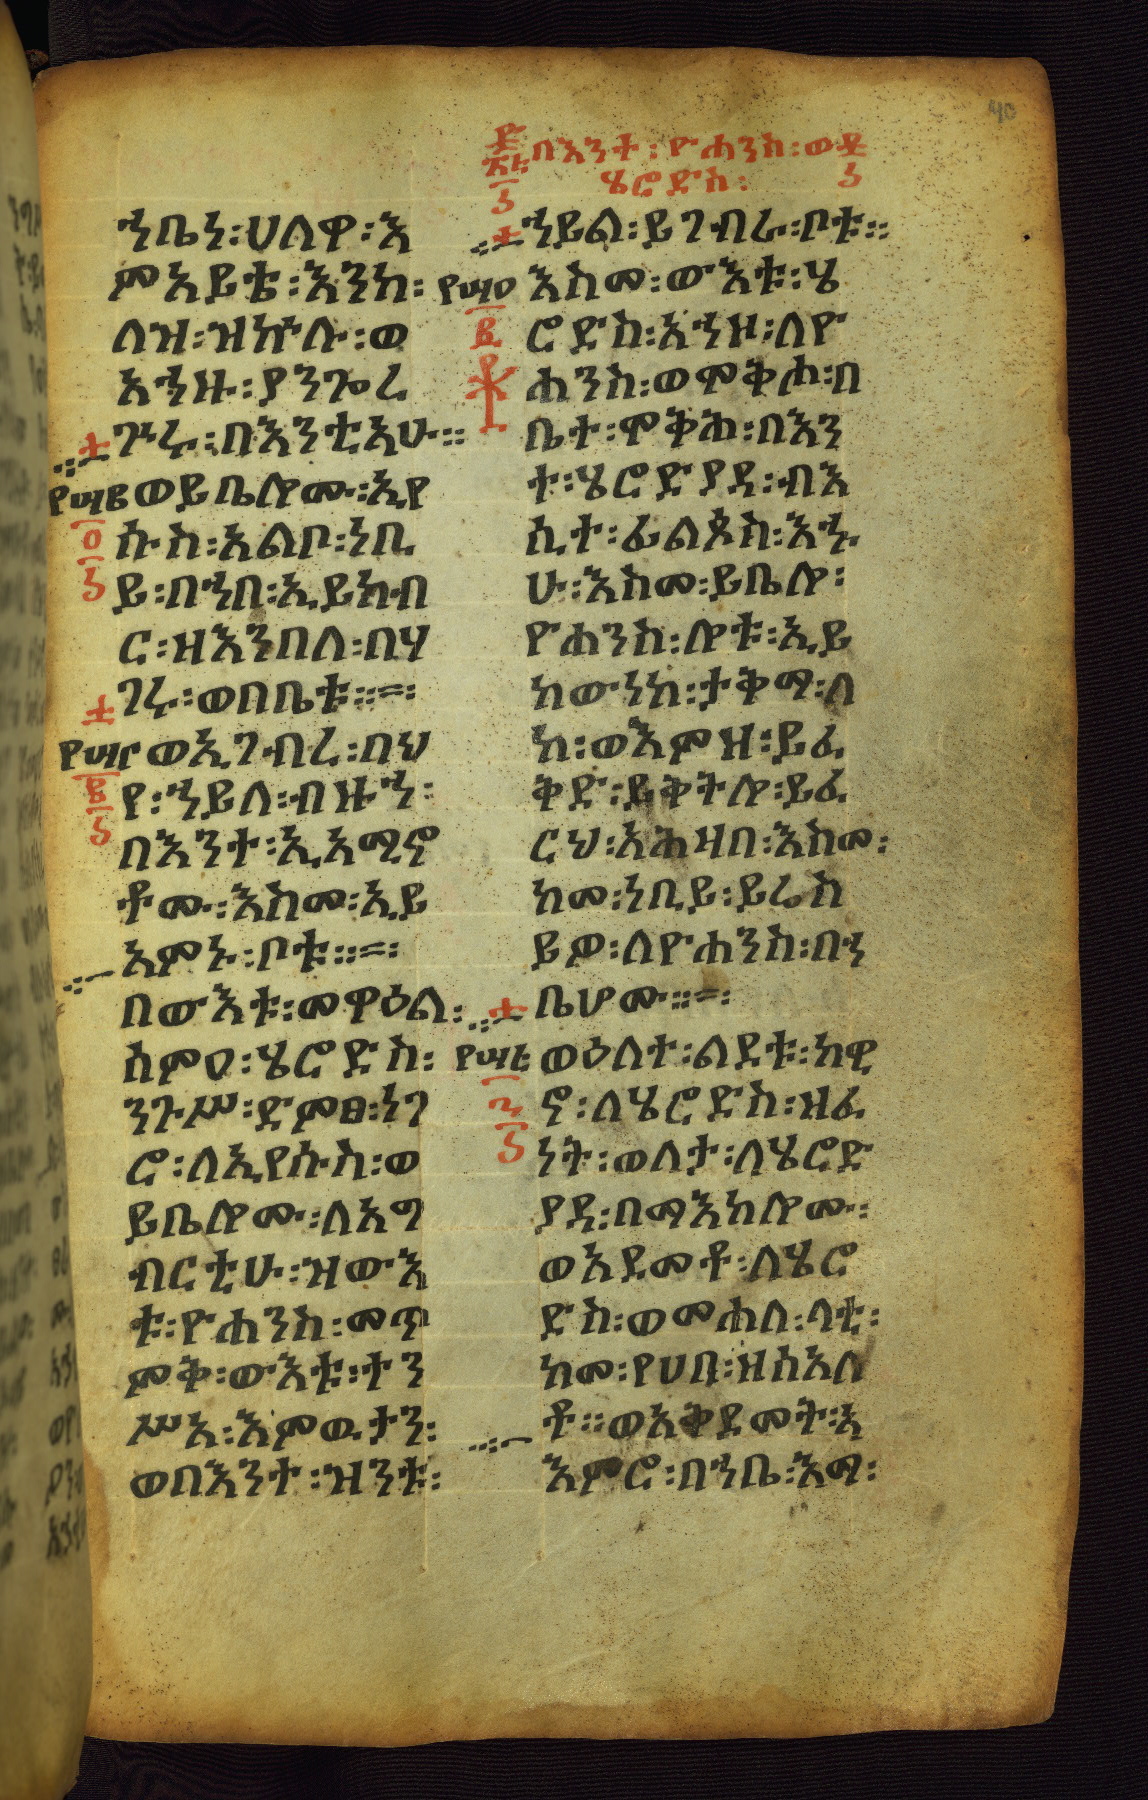 በእንተ፡ዮሐንስ፡ወ
ሄሮድስ፡
ኀቤነ፡ሀለዋ፡እ
ምአይቴ፡እንከ፡
ለዝ፡ዝኵሉ፡ወ
አኀዙ፡ያንጐረ
ጕሩ፡በእንቲአሁ።
ወይቤሎሙ፡ኢየ
ሱስ፡አልቦ፡ነቢ
ይ፡በኀበ፡ኢይክብ
ር፡ዘእንበለ፡በሃ
ገሩ፡ወበቤቱ።
ወኢገብረ፡በህ
የ፡ኀይለ፡ብዙኀ፡
በእንተ፡ኢአሚኖ
ቶሙ፡እስመ፡ኢይ
አምኑ፡ቦቱ።
በውእቱ፡መዋዕል፡
ስምዐ፡ሄሮድስ፡
ንጉሥ፡ድምፀ፡ነገ
ሮ፡ለኢየሱስ፡ወ
ይቤሎሙ፡ለአግ
ብርቲሁ፡ዝውእ
ቱ፡ዮሐንስ፡መጥ
ምቅ፡ውእቱ፡ተን
ሥአ፡እምዉታን፡
ወበእንተ፡ዝንቱ፡
ኀይል፡ይገብራ፡ቦቱ።
እስመ፡ውእቱ፡ሄ
ሮድስ፡አኀዞ፡ለዮ
ሐንስ፡ወሞቅሖ፡በ
ቤተ፡ሞቅሕ፡በእን
ተ፡ሄሮድያዳ፡ብእ
ሲተ፡ፊልጶስ፡እኁ
ሁ፡እስመ፡ይቤሎ፡
ዮሐንስ፡ሎቱ፡ኢይ
ከውነከ፡ታቅማ፡ለ
ከ፡ወእምዝ፡ይፈ
ቅድ፡ይቅትሎ፡ይፈ
ርህ፡አሕዛበ፡እስመ፡
ከመ፡ነቢይ፡ይሬስ
ይዎ፡ለዮሐንስ፡በኀ
ቤሆሙ።
ወዕለተ፡ልደቱ፡ከዊ
ኖ፡ለሄሮድስ፡ዘፈ
ነት፡ወለታ፡ለሄሮድ
ያዳ፡በማእከሎሙ፡
ወአደመቶ፡ለሄሮ
ድስ፡ወመሐለ፡ላቲ፡
ከመ፡የሀበ፡ዘስአለ
ቶ።ወአቅደመት፡አ
እምሮ፡በኀቤ፡እማ፡